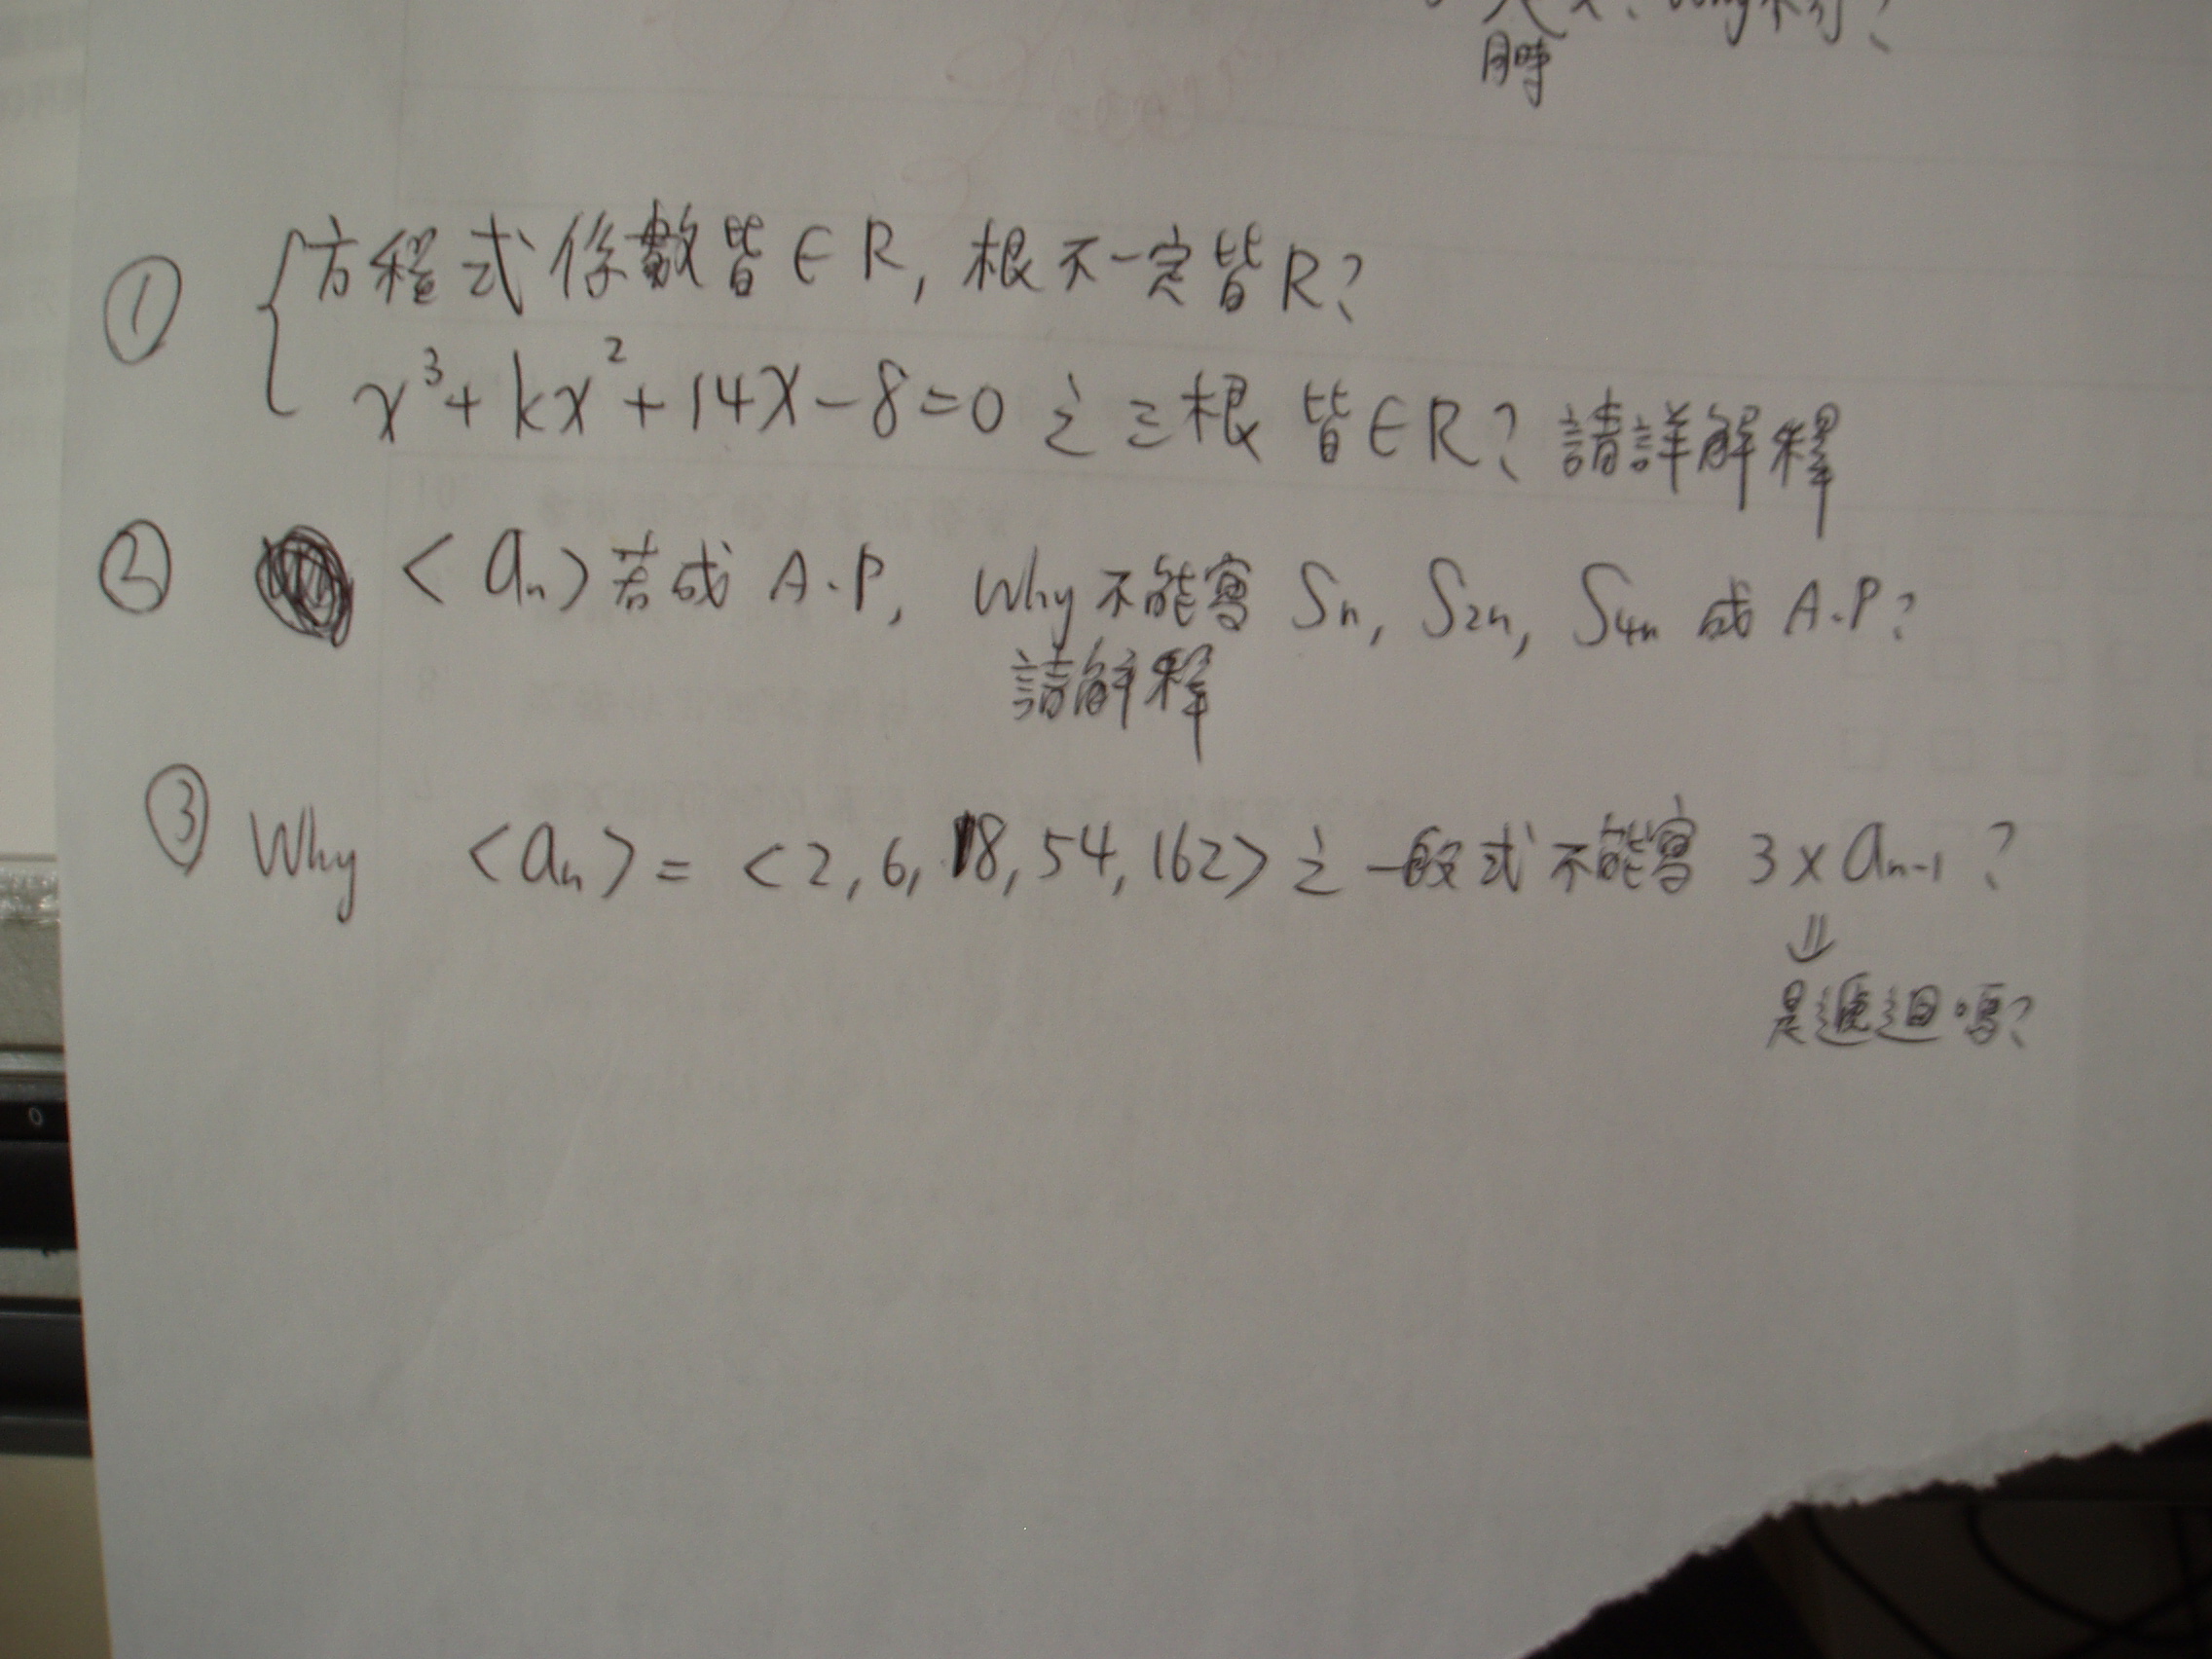 同時
① 方程式係數皆∈R, 根不一定皆R?
x³+kx²+14x-8=0 之三根皆∈R? 請詳解釋
② <an>若成 A.P, Why不能寫 Sn, S2n, S4n 成 A.P?
請解釋
③ Why <an> = <2, 6, 18, 54, 162> 之一般式不能寫 3×an-1?
⇓
是遞迴嗎?